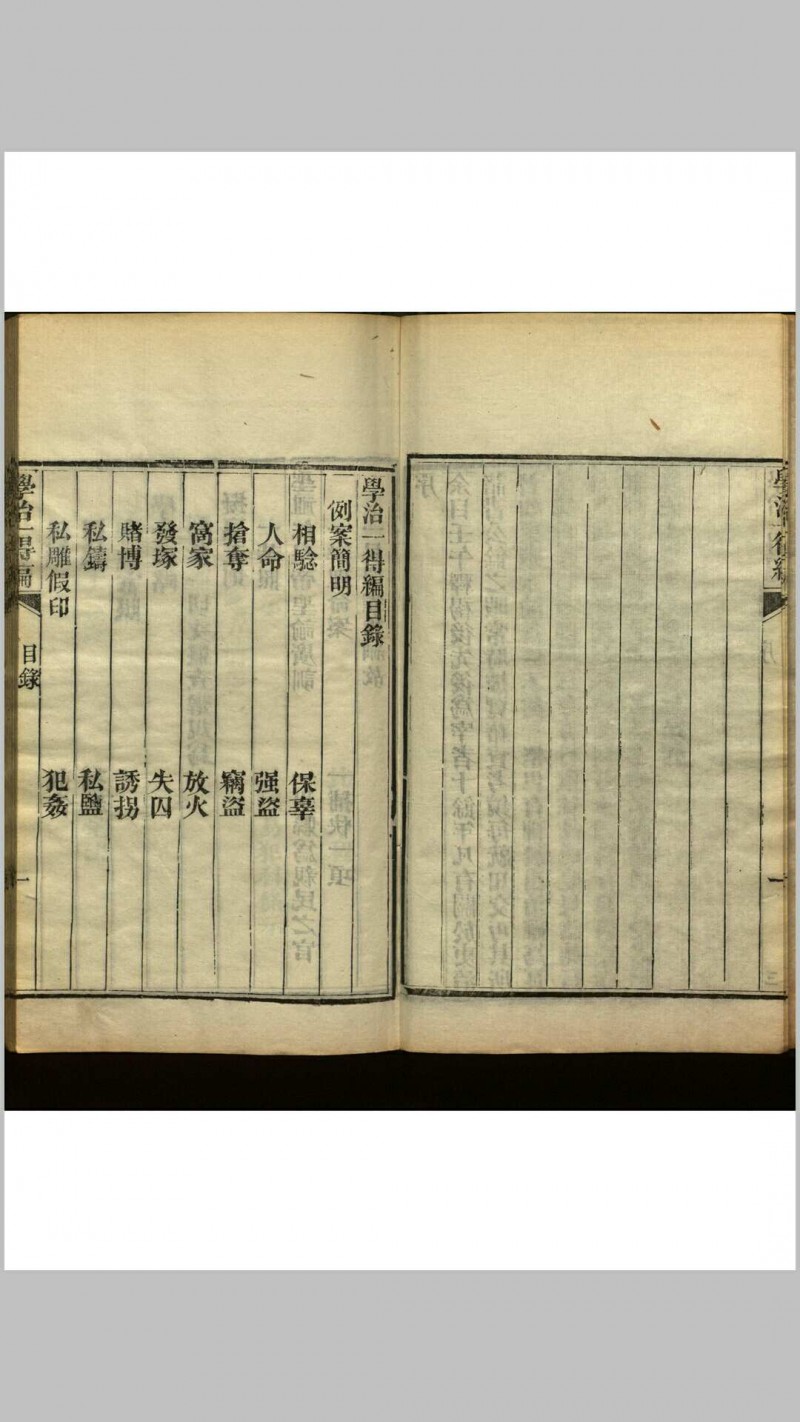 學治一得編
學治一得編目錄
例案簡明
相驗 保辜
人命 强盜
搶奪 竊盜
窩家 放火
發塚 失囚
賭博 誘拐
私鑄 私鹽
私雕假印 犯姦
學治一得編 目錄 一